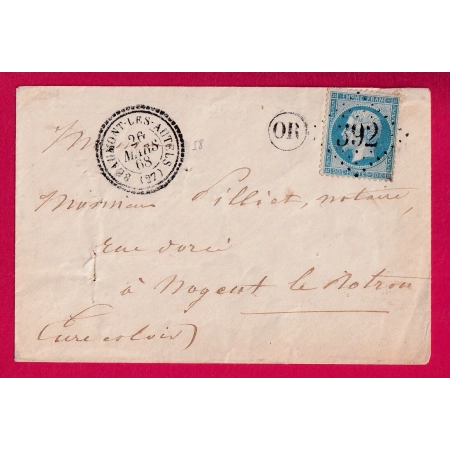 EMPIRE FRANC
392
OR
BEAUMONT-LES-AUTELS (27)
26
MARS
68
58
M
Monsieur Pilliet, notaire,
rue dorée
à Nogent le Rotrou
(Eure et Loir)